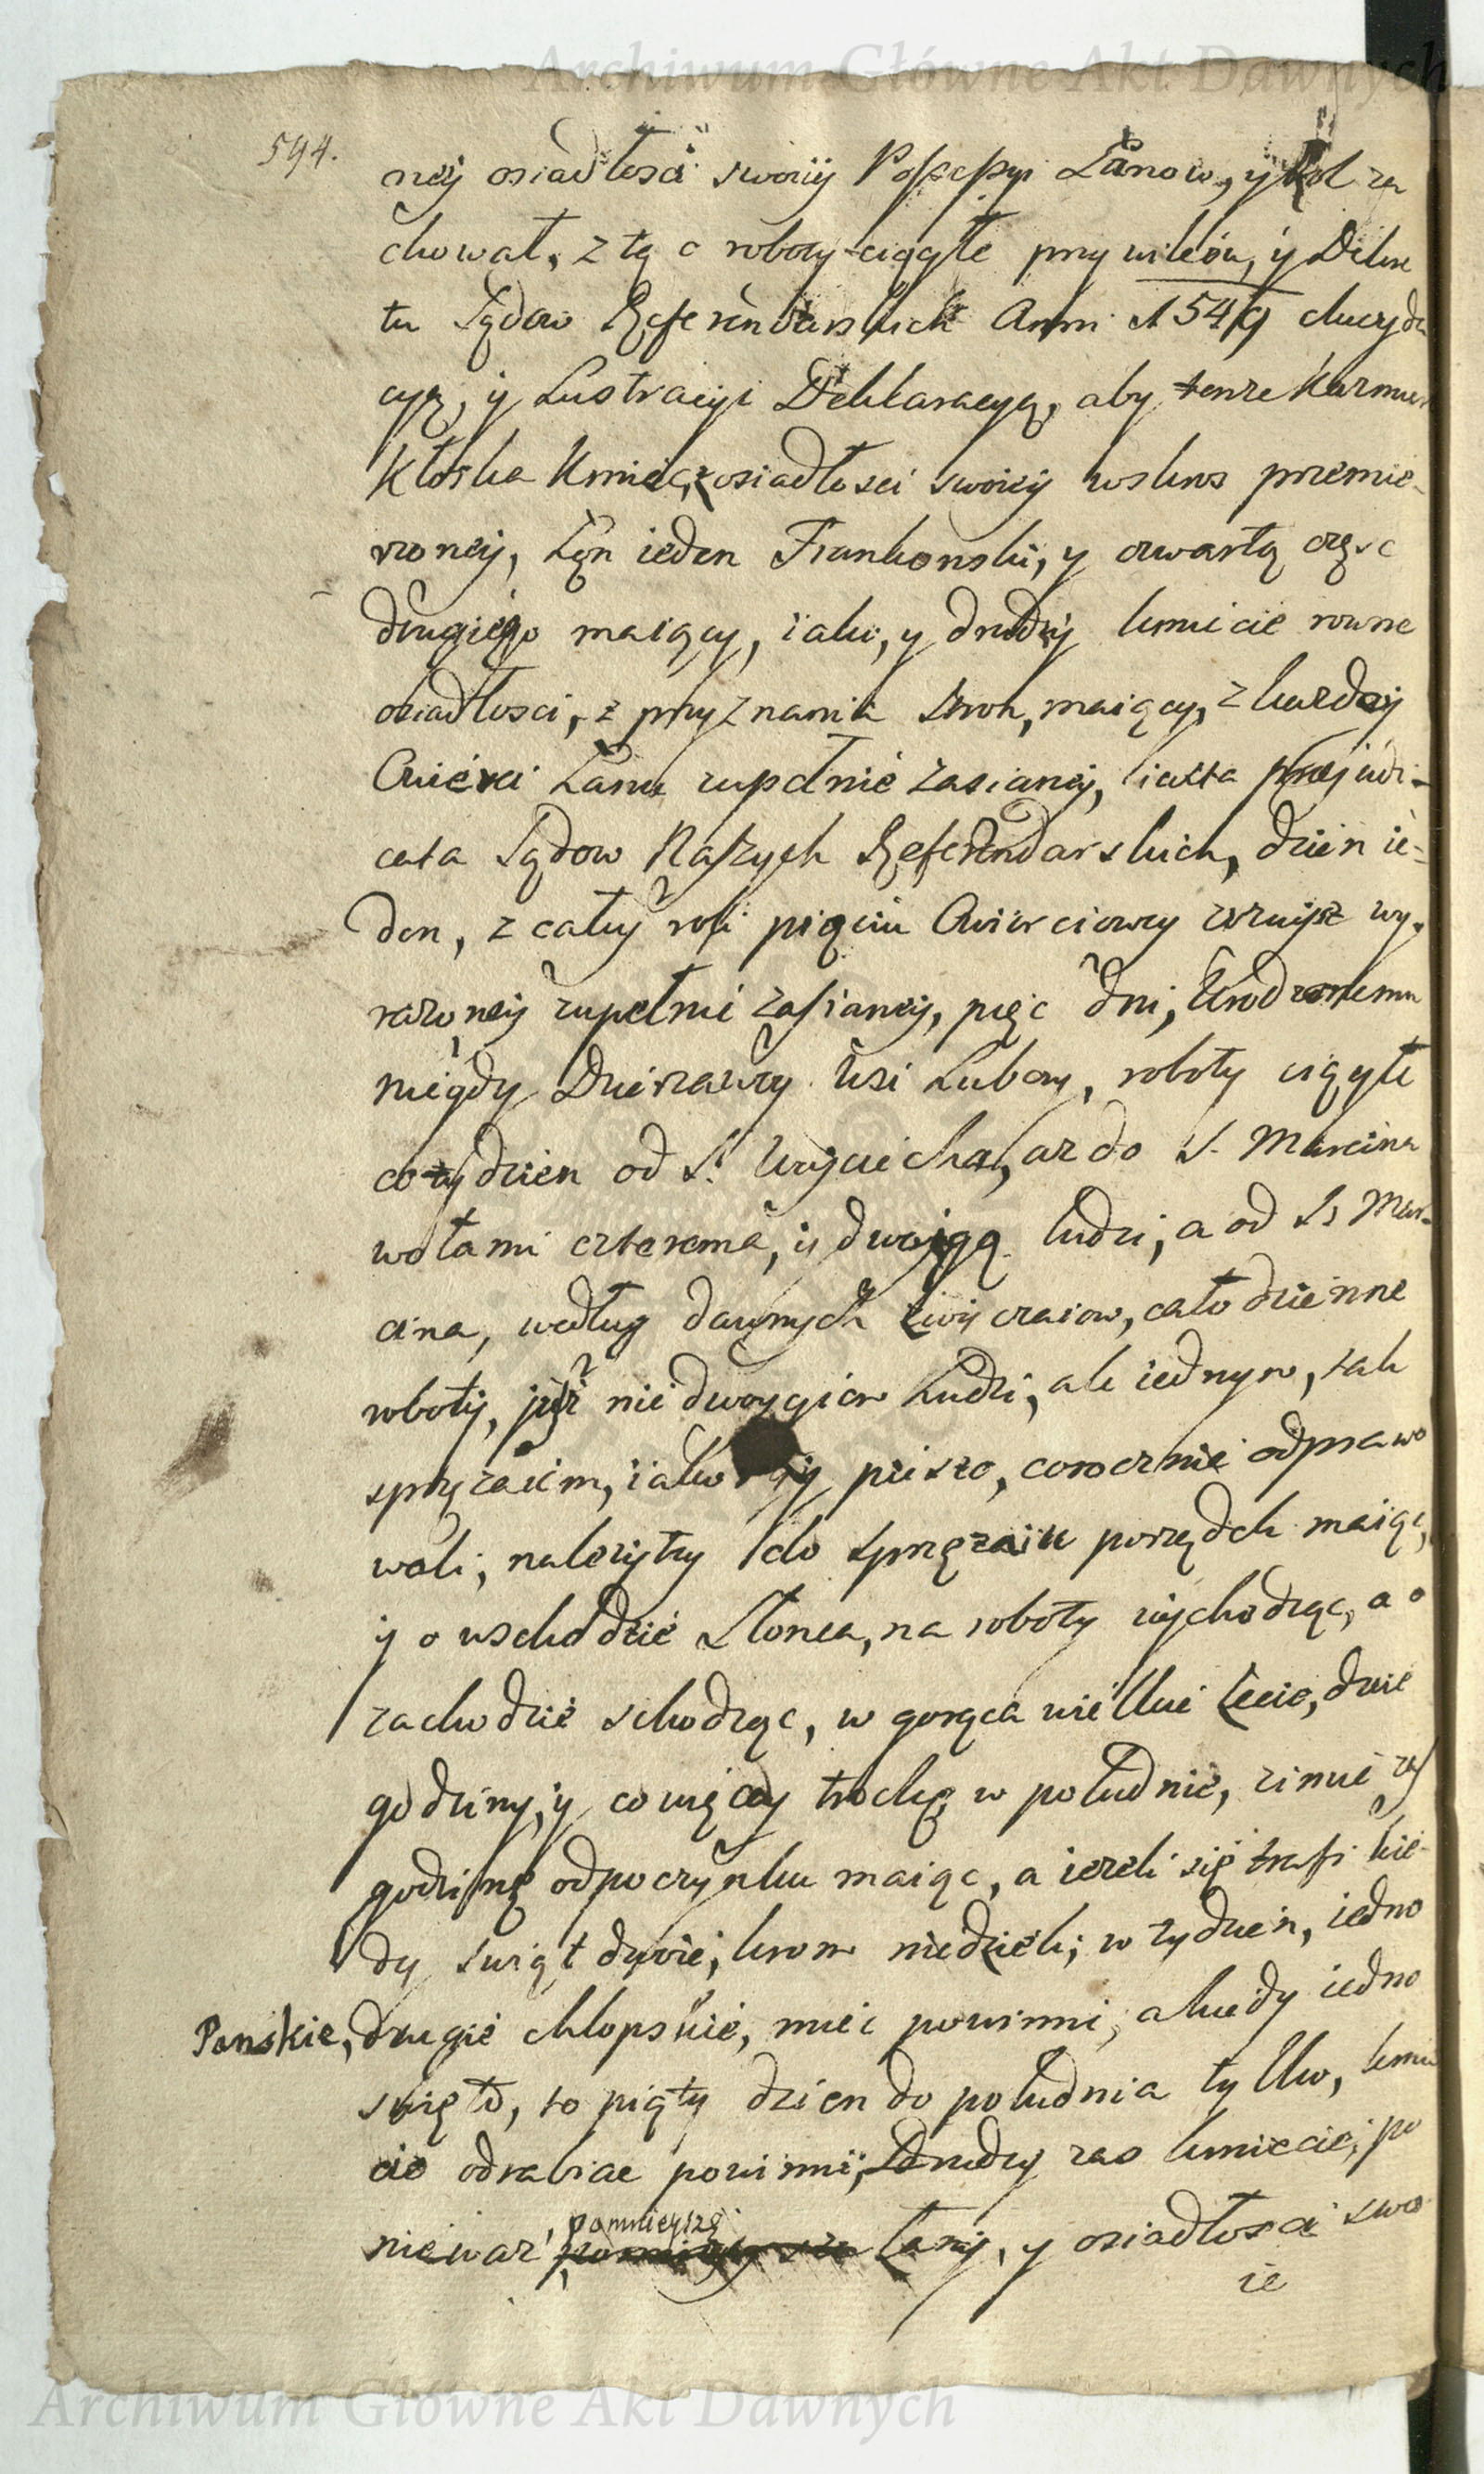 Archiwum Główne Akt Dawnych
594.
ney osiadłosci swoiey Possessyi Łanow, y Rol za
chował, z tą o roboty ciągłe przywileiu, y Dekre
tu Sądow Referendarskich Anni 1549 elucyda
cyą, y Lustracyi Deklaracyą, aby tenze
Kloska Kmiec, z osiadłosci swoiey wskros przemie-
rzoney, Łan ieden Frankonski, y czwartą częsc
drugiego maiący, iako, y drudzy kmiecie rowne
osiadłosci, z przyznania stron, maiący, z kazdey
Cwierci Łanu zupełnie zasianey, iuxta prejudi-
cata Sądow Naszych Referendarskich, dzien ie-
den, z całey roli pięciu Cwierciowey wy-
razoney zupełnie zasianey, pięc dni, Urodzonemu
niegdy Dzierzawcy Wsi Lubczy, roboty ciągłe
co tydzien od S. Woyciecha, az do S. Marcina
wołami czterema, y dwoygą ludzi, a od S. Mar-
cina, według dawnych zwyczaiow, cało dzienne
roboty, iuż nie dwoygiem Ludzi, ale iednym, tak
sprzęzaiem, iako y pieszo, corocznie odprawo
wali, nalezyty do sprzęzaiu porządek maiąc,
y o wschodzie Słonca, na roboty wychodząc, a o
zachodzie schodząc, w gorąca wielkie Lecie, dwie
godziny, y co więcey trochę w południe, zimie zas
godzinę odpoczynku maiąc, a iezeli się trafi kie-
dy swiąt dwie, krom niedzieli, w tydzien, iedno
Panskie, drugie chłopskie, miec powinni, a kiedy iedno
swięto, to piąty dzien do południa tylko, kmie
cie odrabiac powinni, Drudzy zas kmiecie, po
niewaz, pomnieyszę Łany, y osiadłosci swo
ie
Archiwum Główne Akt Dawnych